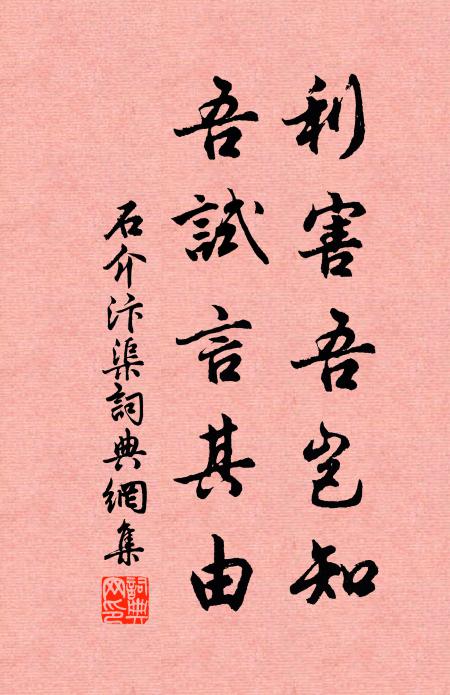 利害吾岂知
吾試言其由
石介汴渠詞典網集
詞典网印